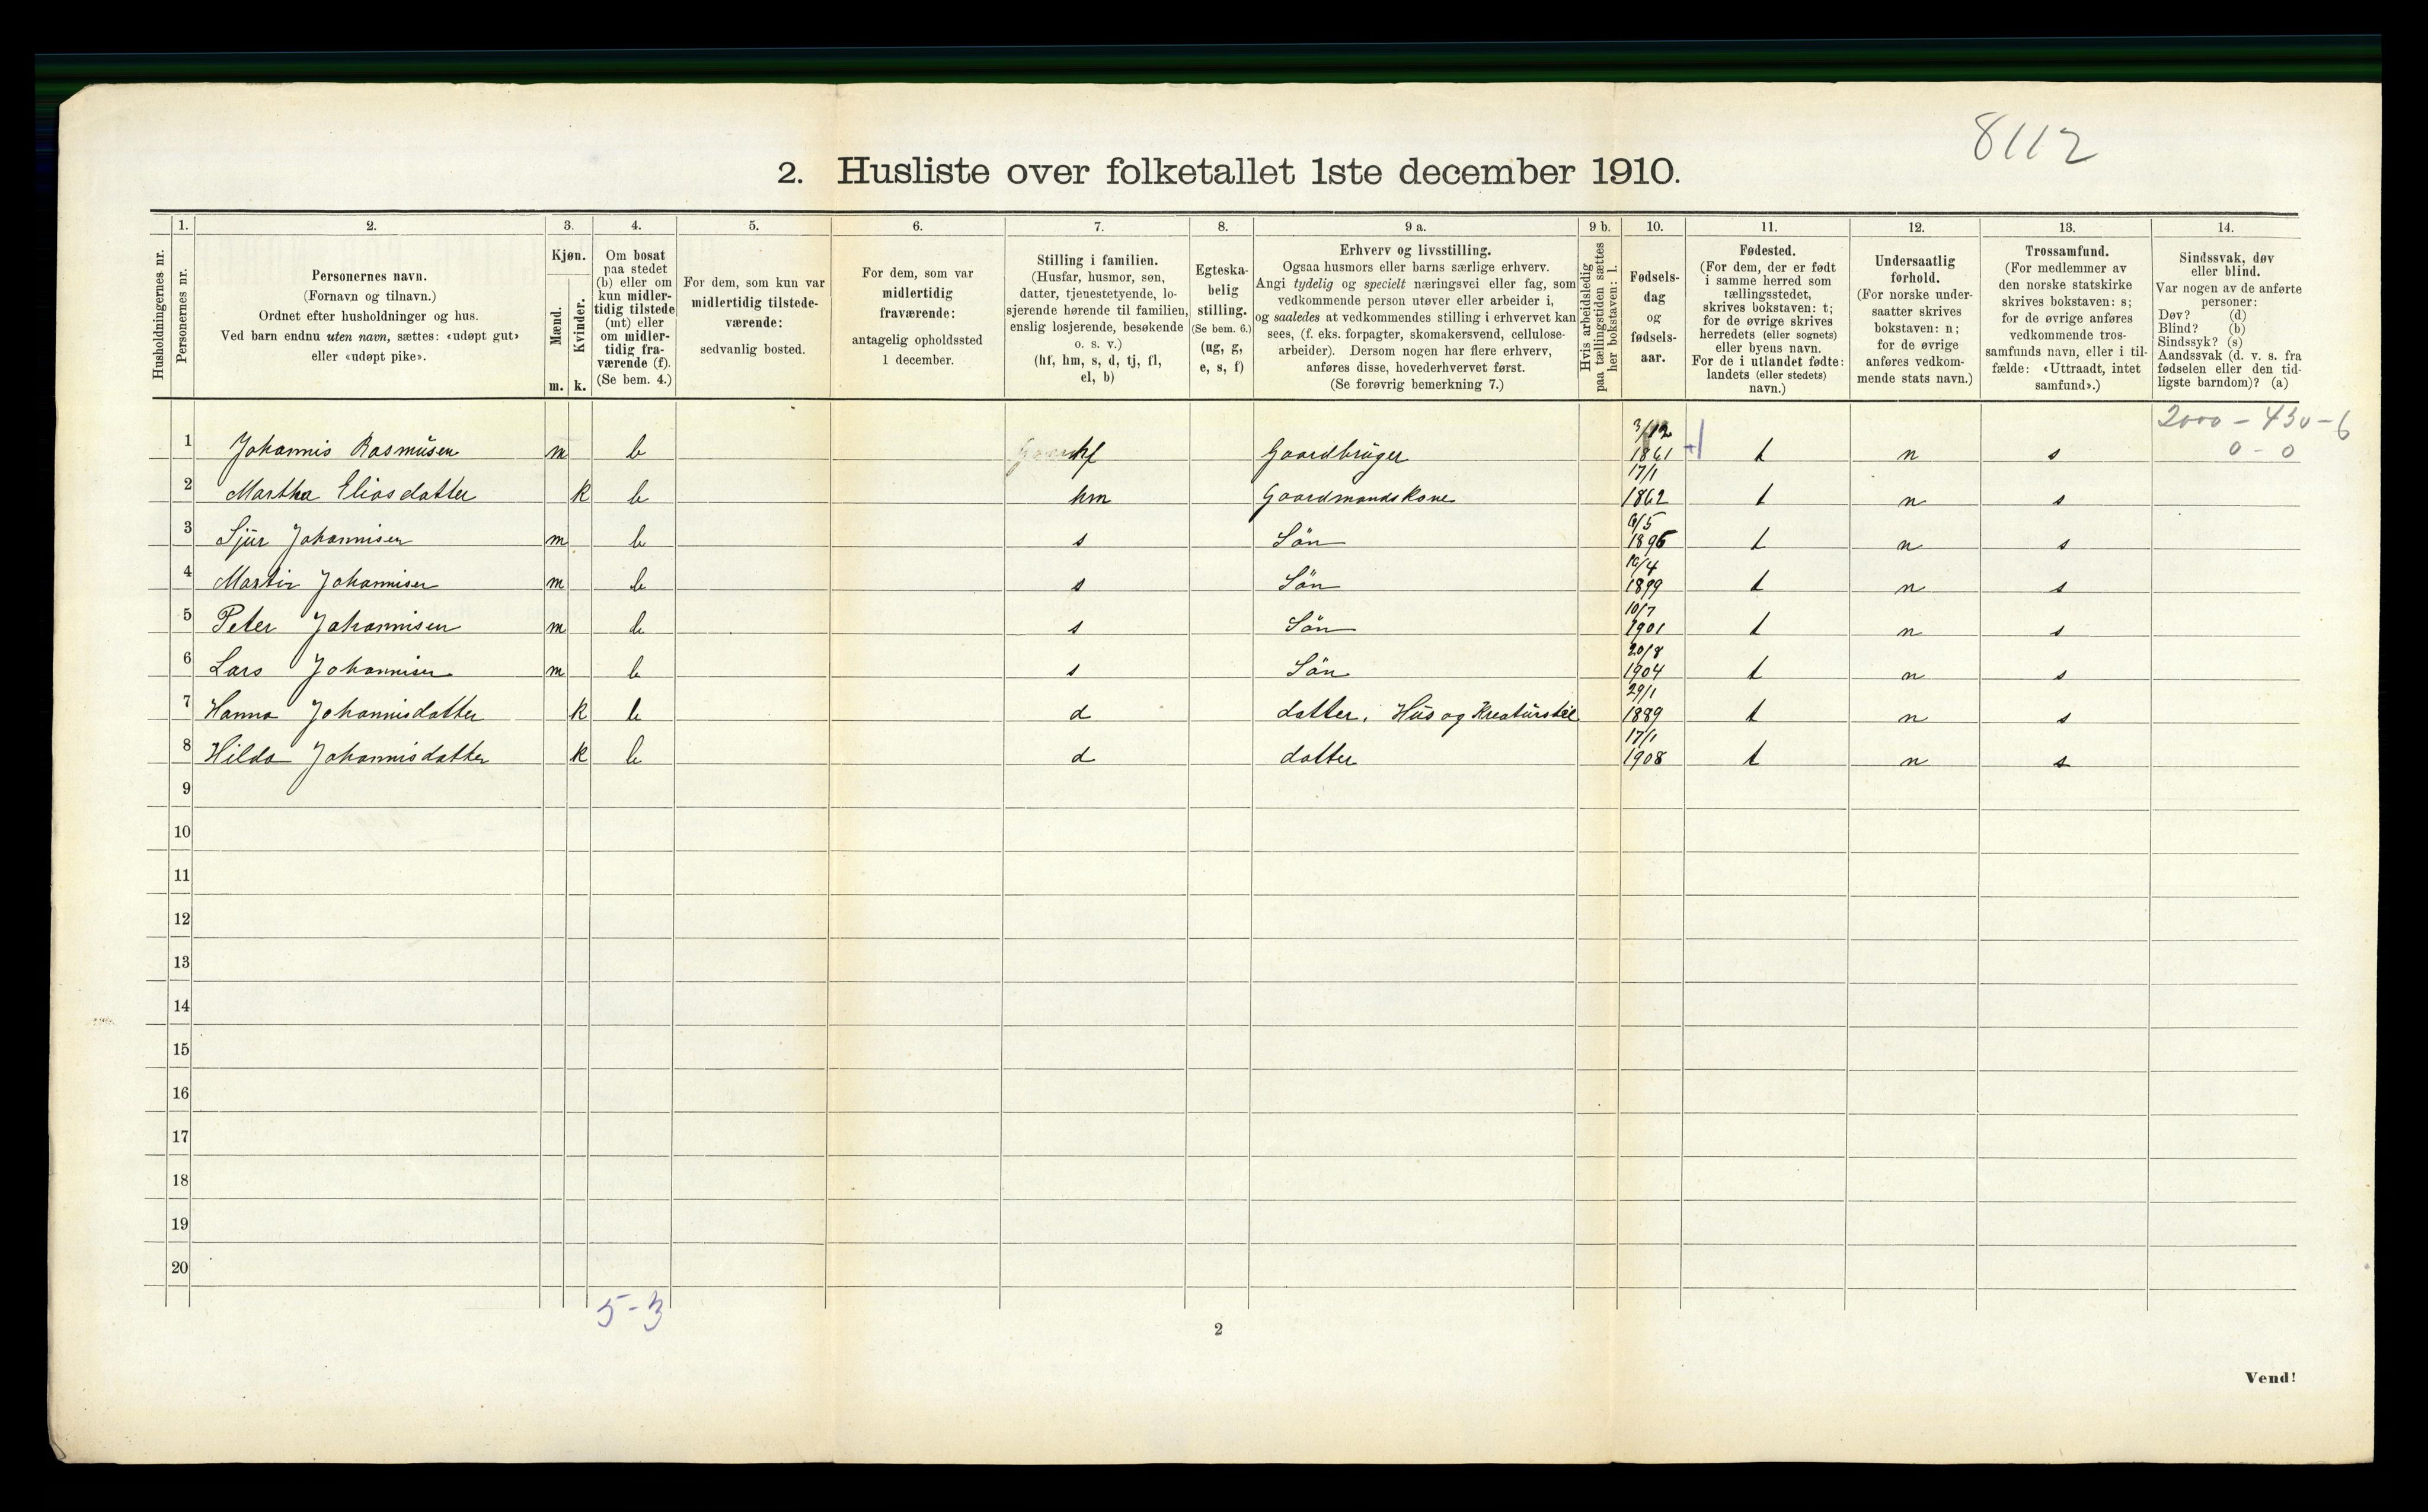 8112
2. Husliste over folketallet 1ste december 1910.
Husholdningernes nr.
1.
Personernes nr.
2.
Personernes navn.
(Fornavn og tilnavn.)
Ordnet efter husholdninger og hus.
Ved barn endnu uten navn, sættes: «udøpt gut»
eller «udøpt pike».
3.
Kjøn.
Mænd.
m.
Kvinder.
k.
4.
Om bosat
paa stedet
(b) eller om
kun midler-
tidig tilstede
(mt) eller
om midler-
tidig fra-
værende (f).
(Se bem. 4.)
5.
For dem, som kun var
midlertidig tilstede-
værende:
sedvanlig bosted.
6.
For dem, som var
midlertidig
fraværende:
antagelig opholdssted
1 december.
7.
Stilling i familien.
(Husfar, husmor, søn,
datter, tjenestetyende, lo-
sjerende hørende til familien,
enslig losjerende, besøkende
o. s. v.)
(hf, hm, s, d, tj, fl,
el, b)
8.
Egteska-
belig
stilling.
(Se bem. 6.)
(ug, g,
e, s, f)
9 a.
Erhverv og livsstilling.
Ogsaa husmors eller barns særlige erhverv.
Angi tydelig og specielt næringsvei eller fag, som
vedkommende person utøver eller arbeider i,
og saaledes at vedkommendes stilling i erhvervet kan
sees, (f. eks. forpagter, skomakersvend, cellulose-
arbeider). Dersom nogen har flere erhverv,
anføres disse, hovederhvervet først.
(Se forøvrig bemerkning 7.)
9 b.
Hvis arbeidsledig
paa tællingstiden sættes
her bokstaven: l.
10.
Fødsels-
dag
og
fødsels-
aar.
11.
Fødested.
(For dem, der er født
i samme herred som
tællingsstedet,
skrives bokstaven: t;
for de øvrige skrives
herredets (eller sognets)
eller byens navn.
For de i utlandet fødte:
landets (eller stedets)
navn.)
12.
Undersaatlig
forhold.
(For norske under-
saatter skrives
bokstaven: n;
for de øvrige
anføres vedkom-
mende stats navn.)
13.
Trossamfund.
(For medlemmer av
den norske statskirke
skrives bokstaven: s;
for de øvrige anføres
vedkommende tros-
samfunds navn, eller i til-
fælde: «Uttraadt, intet
samfund».)
14.
Sindssvak, døv
eller blind.
Var nogen av de anførte
personer:
Døv? (d)
Blind? (b)
Sindssyk? (s)
Aandssvak (d. v. s. fra
fødselen eller den tid-
ligste barndom)? (a)
2000 - 430 - 6
0 - 0
1 Johannis Rasmusen m b hf Gaardbruger 3/12 1861 t n s
2 Martha Eliasdatter k b hm Gaardmandskone 17/1 1862 t n s
3 Sjur Johannisen m b s Sön 6/5 1896 t n s
4 Martin Johannisen m b s Sön 10/4 1899 t n s
5 Peter Johannisen m b s Sön 10/7 1901 t n s
6 Lars Johannisen m b s Sön 20/8 1904 t n s
7 Hanna Johannisdatter k b d datter. Hus og Kreaturstel 29/1 1889 t n s
8 Hilda Johannisdatter k b d datter 17/1 1908 t n s
9
10
11
12
13
14
15
16
17
18
19
20
5-3
2
Vend!